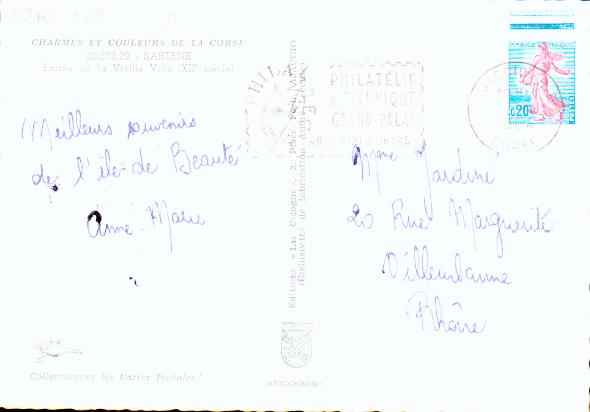 CHARMES ET COULEURS DE LA CORSE
20.272.29 - SARTENE
Entrée de la Vieille Ville (XIIe siècle)
Meilleurs souvenirs
de l'île de Beauté
Anne-Marie
Collectionnez les Cartes Postales !
Editions « La Cigogne », 2, Place Foch, AJACCIO
(Exclusivité de fabrication André Leconte)
MEXICHROME
PHILATÉLIE
& TECHNIQUE
GRAND-PALAIS
REPUBLIQUE FRANÇAISE
0,20
POSTES
CORSE
Mme Jardiné
20 Rue Marguerite
Villeurbanne
Rhône